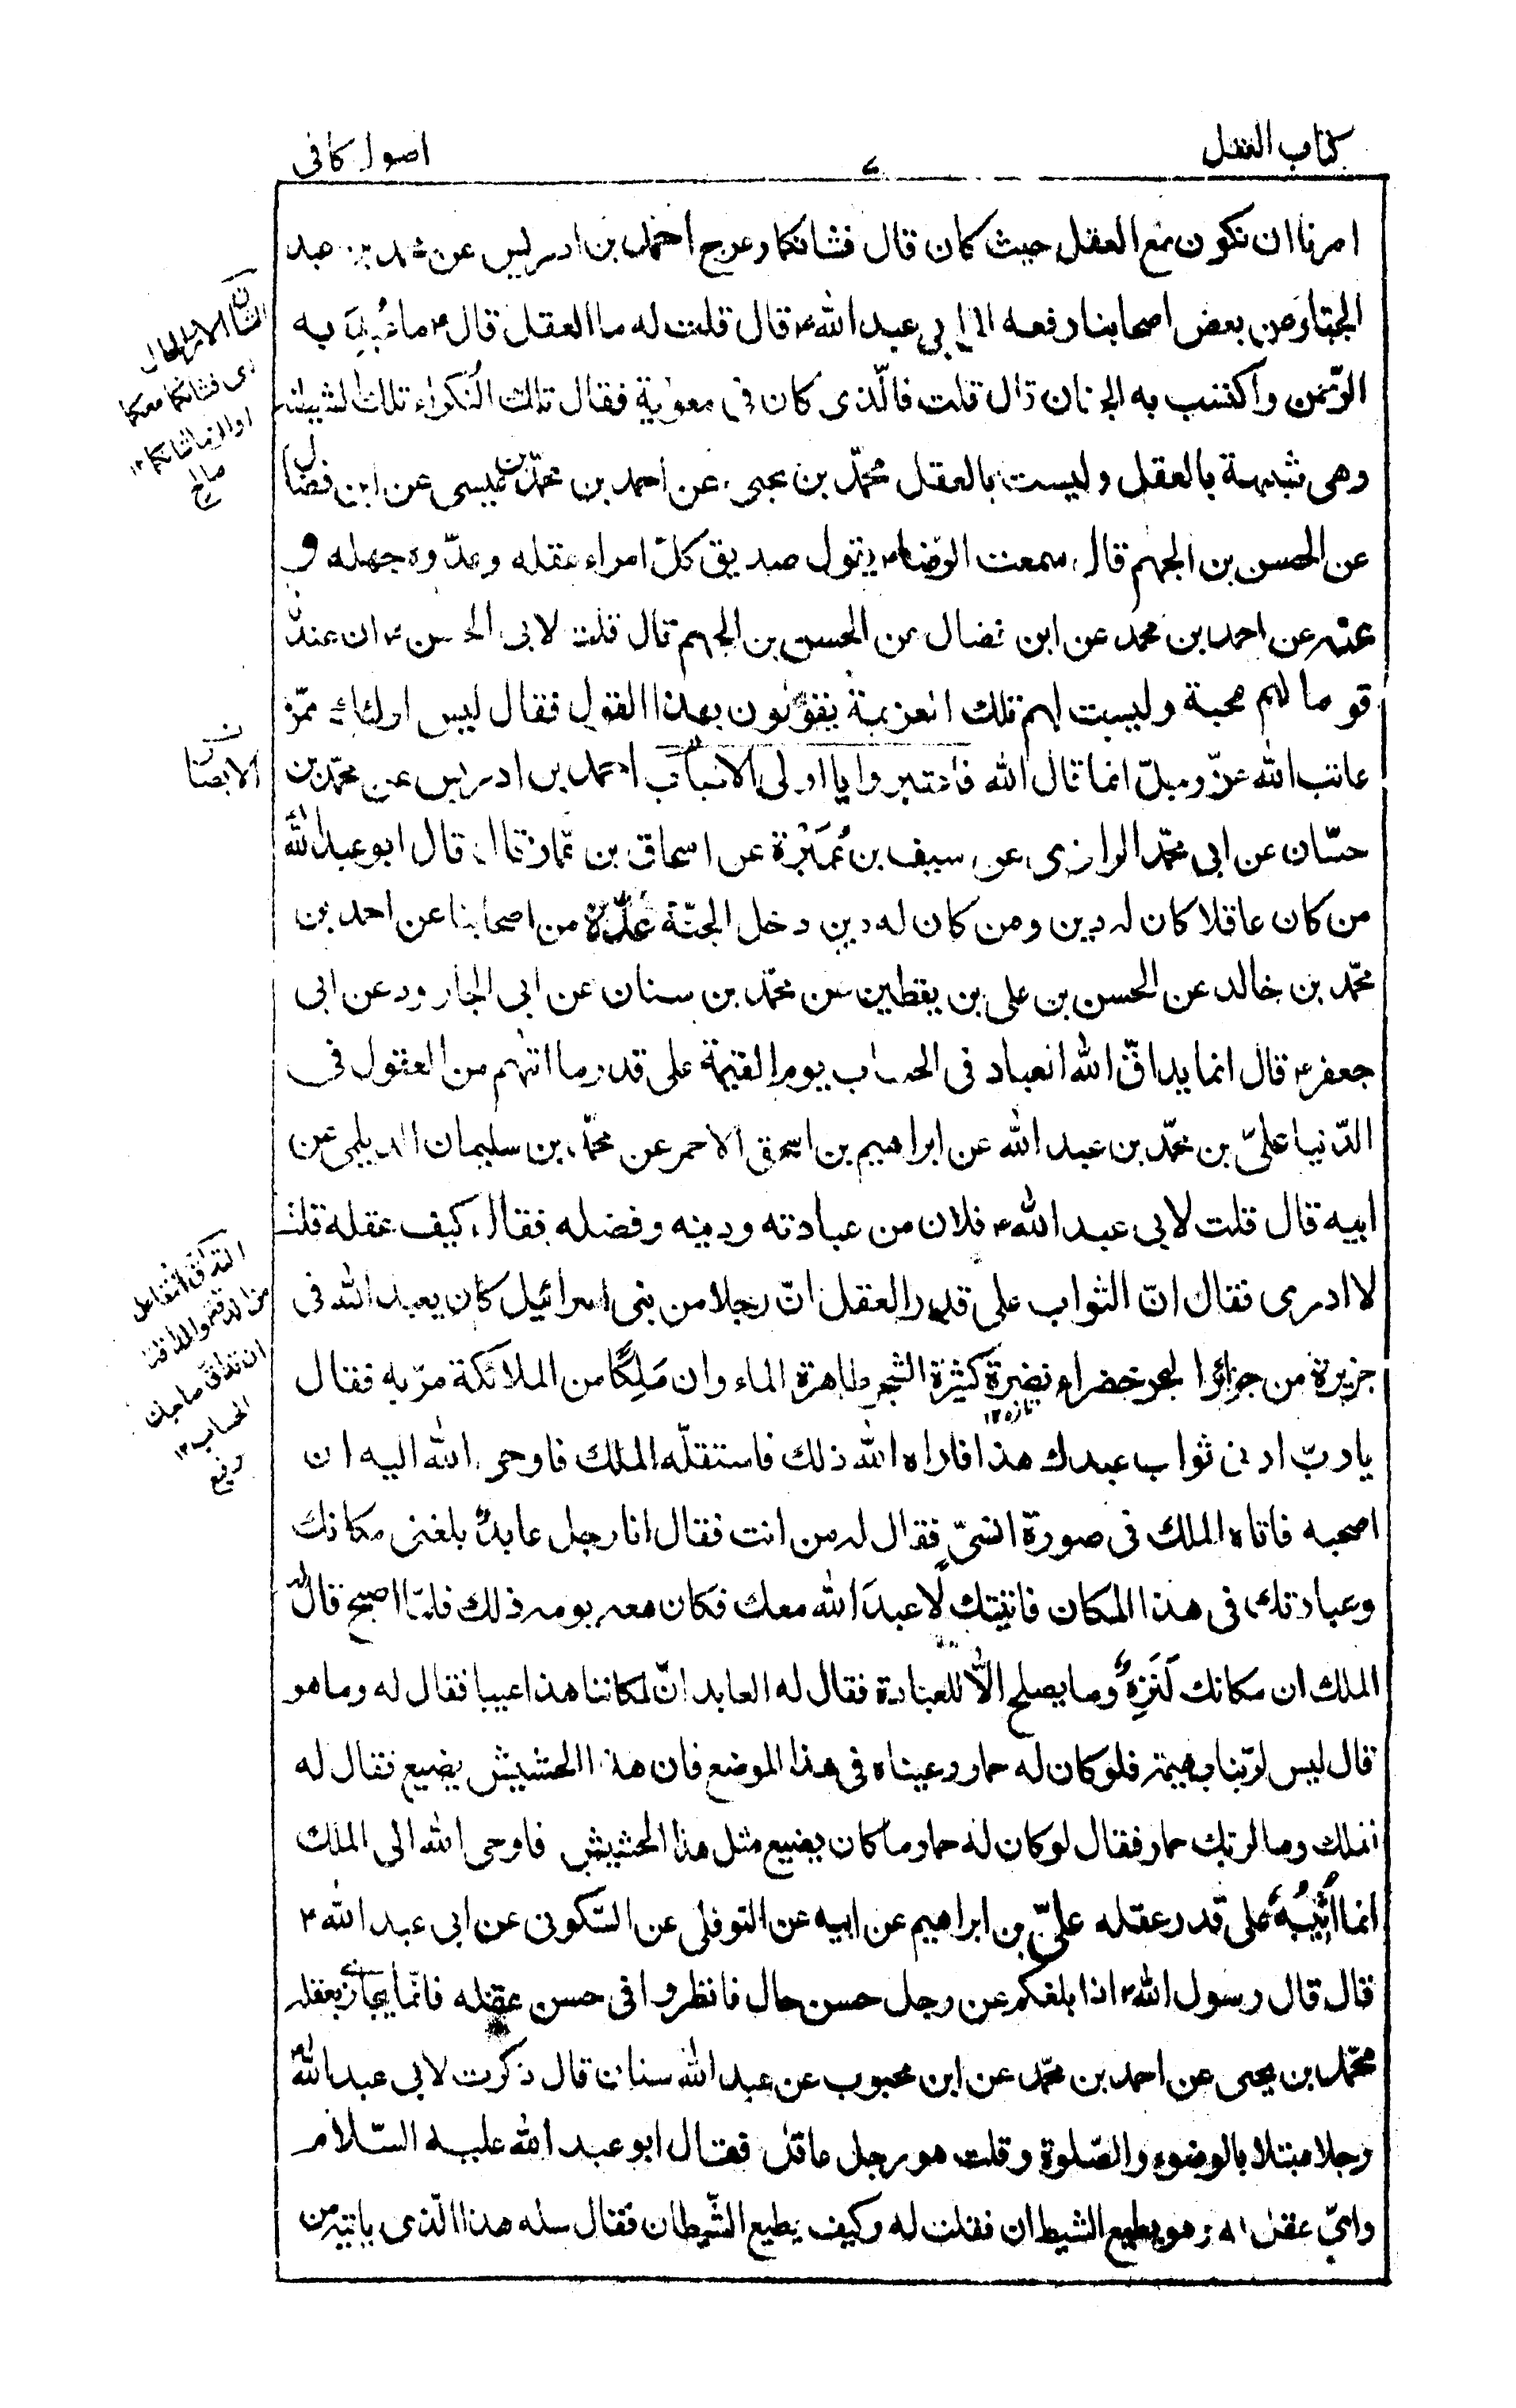 كتاب العقل
٧
اصول كافى
امرنا ان نكون مع العقل حيث كان قال فشانكما وعرج احمد بن ادريس عن محمد بن عبد
الجبار عن بعض اصحابنا رفعه الى ابى عبد الله ع قال قلت له ما العقل قال ع ما عُبِدَ به
الرّحمن واكتسب به الجنان قال قلت فالّذى كان فى معوية فقال تلك النّكراء تلك الشيطنة
وهى شبيهة بالعقل وليست بالعقل محمّد بن يحيى عن احمد بن محمّد بن عيسى عن ابن فضال
عن الحسن بن الجهم قال سمعت الرّضا ع يقول صديق كلّ امراء عقله وعدّوه جهله و
عنه عن احمد بن محمد عن ابن فضال عن الحسن بن الجهم قال قلت لابى الحسن ع ان عندنا
قوما لهم محبة وليست لهم تلك العزيمة يقولون بهذا القول فقال ليس اولئك ممّن
عاتب الله عزّ وجلّ انما قال الله فاعتبروا يا اولى الالباب احمد بن ادريس عن محمّد بن
حسّان عن ابى محمّد الرازى عن سيف بن عُمَيْرة عن اسحاق بن عمّار قال قال ابو عبد الله ع
من كان عاقلا كان له دين ومن كان له دين دخل الجنّة عدّة من اصحابنا عن احمد بن
محمّد بن خالد عن الحسن بن على بن يقطين عن محمّد بن سنان عن ابى الجارود عن ابى
جعفر ع قال انما يداقّ الله العباد فى الحساب يوم القيمة على قدر ما اتهم من العقول فى
الدّنيا علىّ بن محمّد بن عبد الله عن ابراهيم بن اسحق الاحمر عن محمّد بن سليمان الديلمى عن
ابيه قال قلت لابى عبد الله ع فلان من عبادته ودينه وفضله فقال كيف عقله قلت
لا ادرى فقال انّ الثواب على قدر العقل انّ رجلا من بنى اسرائيل كان يعبد الله فى
جزيرة من جزائر البحر خضراء نضرة كثيرة الشجر طاهرة الماء وان مَلِكًا من الملائكة مرّ به فقال
تازه ١٢
يا ربّ ارنى ثواب عبدك هذا فاراه الله ذلك فاستقلّه الملك فاوحى الله اليه ان
اصحبه فاتاه الملك فى صورة انسىّ فقال له من انت فقال انا رجل عابد بلغنى مكانك
وعبادتك فى هذا المكان فاتيتك لاعبدَ الله معك فكان معه يومه ذلك فلمّا اصبح قال له
الملك ان مكانك لَنَزِهٌ وما يصلح الّا للعبادة فقال له العابد انّ لمكاننا هذا عيبا فقال له وما هو
قال ليس لربّنا بهيمة فلو كان له حمار رعيناه فى هذا الموضع فان هذا الحشيش يضيع فقال له
الملك وما لربّك حمار فقال لو كان له حمار ما كان يضيع مثل هذا الحشيش فاوحى الله الى الملك
انما اُثِيبُهُ على قدر عقله علىّ بن ابراهيم عن ابيه عن النوفلى عن السّكونى عن ابى عبد الله ع
قال قال رسول الله ص اذا بلغكم عن رجل حسن حال فانظروا فى حسن عقله فانّما يجازى بعقله
محمّد بن يحيى عن احمد بن محمّد عن ابن محبوب عن عبد الله سنان قال ذكرت لابى عبد الله ع
رجلا مبتلا بالوضوء والصّلوة وقلت هو رجل عاقل فقال ابو عبد الله عليه السّلام
واىّ عقل له وهو يطيع الشيطان فقلت له وكيف يطيع الشّيطان فقال سله هذا الّذى ياتيه من
الشان الامر والحال
اى فشانكما معكما
او الزما شانكما ١٢
صالح
الابصار
التداقّ تفاعل
من الدقة والمداقة
ان تداقّ صاحبك
الحساب ١٢
رفيع